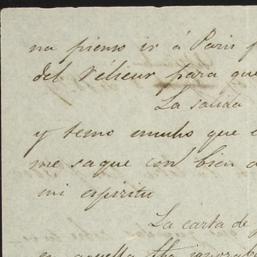 na pienso ir á Paris
del Vélieur para que
La salida
y temo mucho que
me saque con bien
mi espiritu
La carta de
en aquella